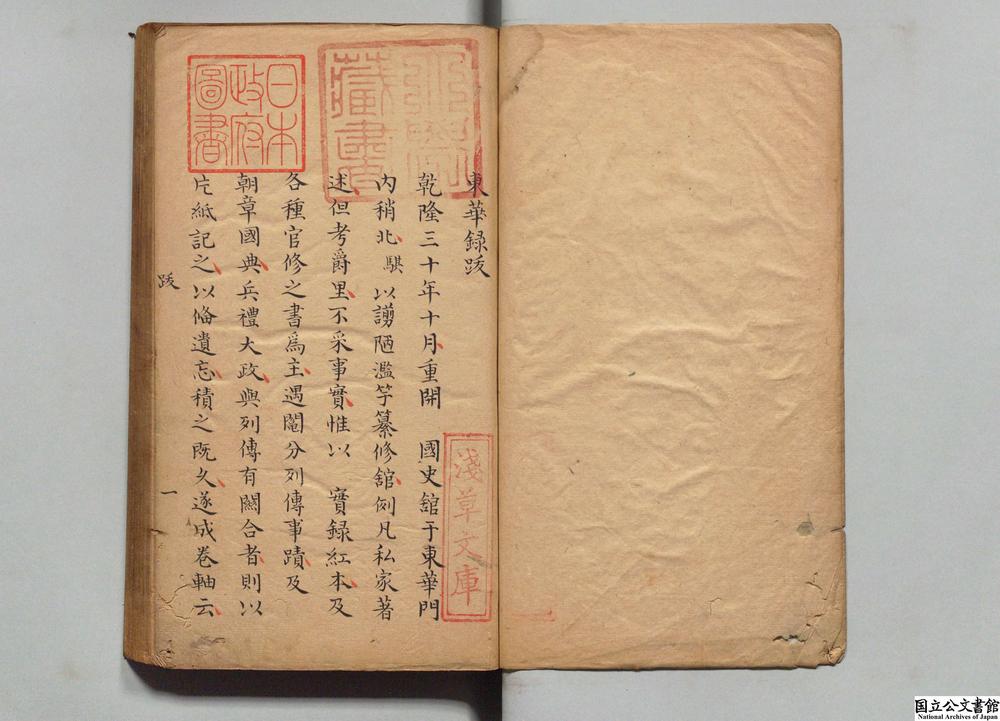 東華録跋
乾隆三十年十月重開　國史舘于東華門
内稍北騏以謭陋濫竽纂修舘例凡私家著
述但考爵里不采事實惟以　實録紅本及
各種官修之書爲主遇鬮分列傳事蹟及
朝章國典兵禮大政與列傳有關合者則以
片紙記之以俻遺忘積之既久遂成卷軸云
跋　一
藏書
日本
政府
圖書
淺草文庫
国立公文書館
National Archives of Japan